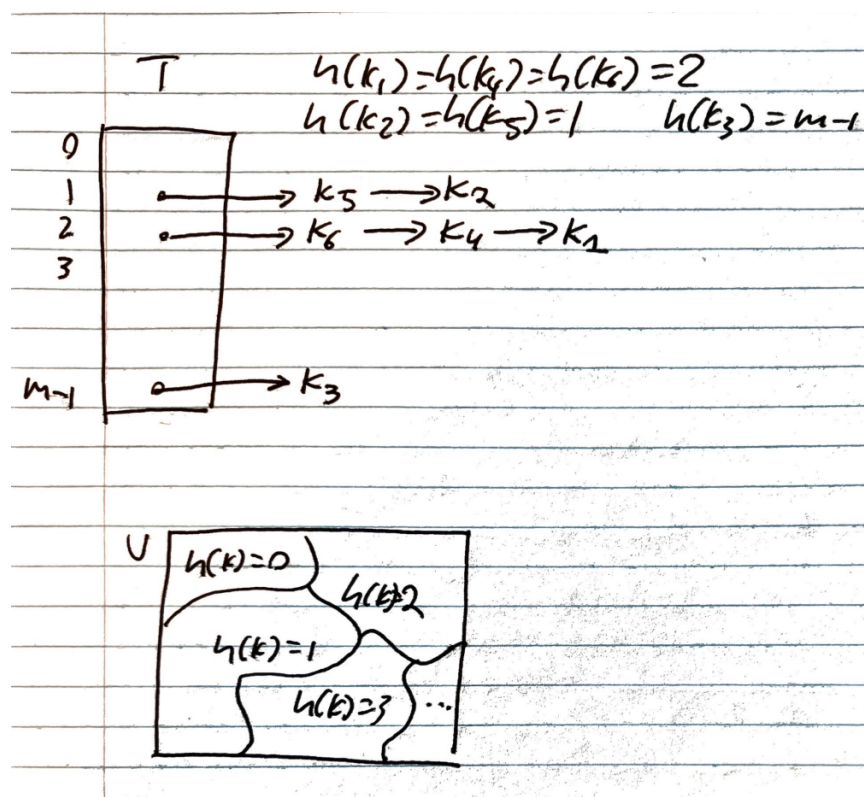 T
h(k₁)=h(k₄)=h(k₆)=2
h(k₂)=h(k₅)=1 h(k₃)=m-1
0
1 → k₅ → k₂
2 → k₆ → k₄ → k₁
3
m-1 → k₃
U
h(k)=0
h(k)=2
h(k)=1
h(k)=3 ...